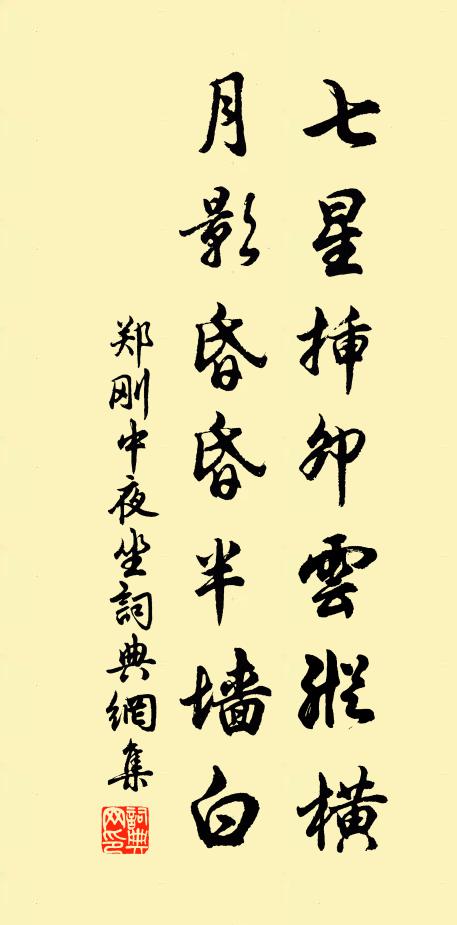 七星揷卯雲縱橫
月影昏昏半墙白
郑刚中夜坐詞典網集
詞典网印